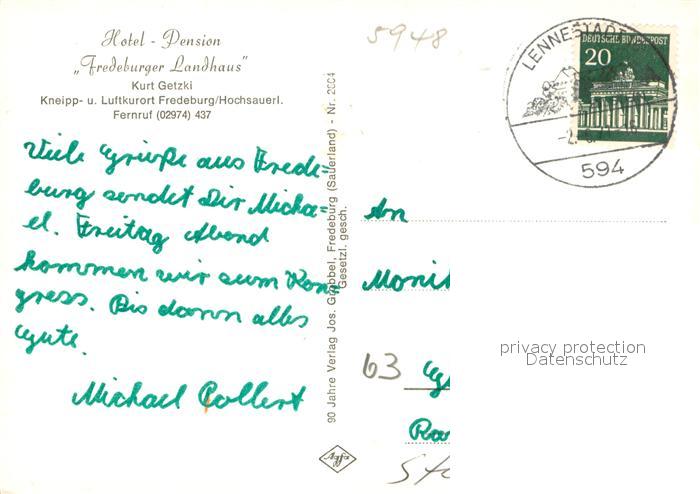 Hotel - Pension
„Fredeburger Landhaus"
Kurt Getzki
Kneipp- u. Luftkurort Fredeburg/Hochsauerl.
Fernruf (02974) 437
Viele Grüße aus Frede=
burg sendet Dir Micha=
el. Freitag Abend
kommen wir zum Kon
gress. Bis dann alles
Gute.
Michael Collert
90 Jahre Verlag Jos. Grobbel, Fredeburg (Sauerland) - Nr. 2604
Gesetzl. gesch.
Agfa
5948
LENNESTADT
594
DEUTSCHE BUNDESPOST
20
An
Monik
63
privacy protection
Datenschutz